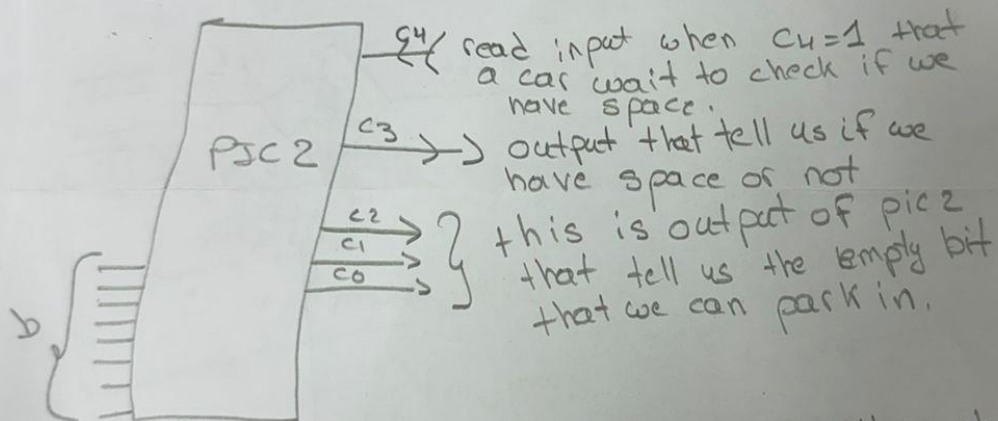 C4 read input when C4=1 that
a car wait to check if we
have space.
PIC2
C3 output that tell us if we
have space or not
C2
C1
C0
this is output of pic2
that tell us the emply bit
that we can park in.
b